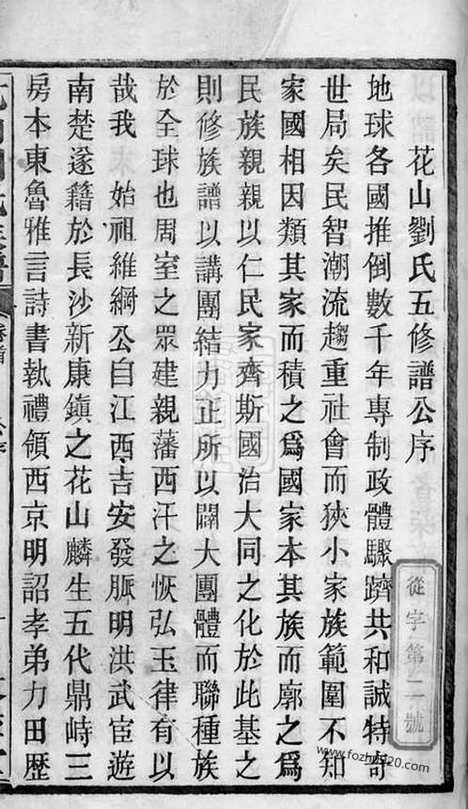 花山劉氏五修譜公序
地球各國推倒數千年專制政體驟躋共和誠特奇
世局矣民智潮流趨重社會而狹小家族範圍不知
家國相因類其家而積之爲國家本其族而廓之爲
民族親親以仁民家齊斯國治大同之化於此基之
則修族譜以講團結力正所以闢大團體而聯種族
於全球也周室之眾建親藩西汗之恢弘玉律有以
哉我 始祖維綱公自江西吉安發脈明洪武宦遊
南楚遂籍於長沙新康鎮之花山麟生五代鼎峙三
房本東魯雅言詩書執禮領西京明詔孝弟力田歴
從字第二號
www.fozhu920.com